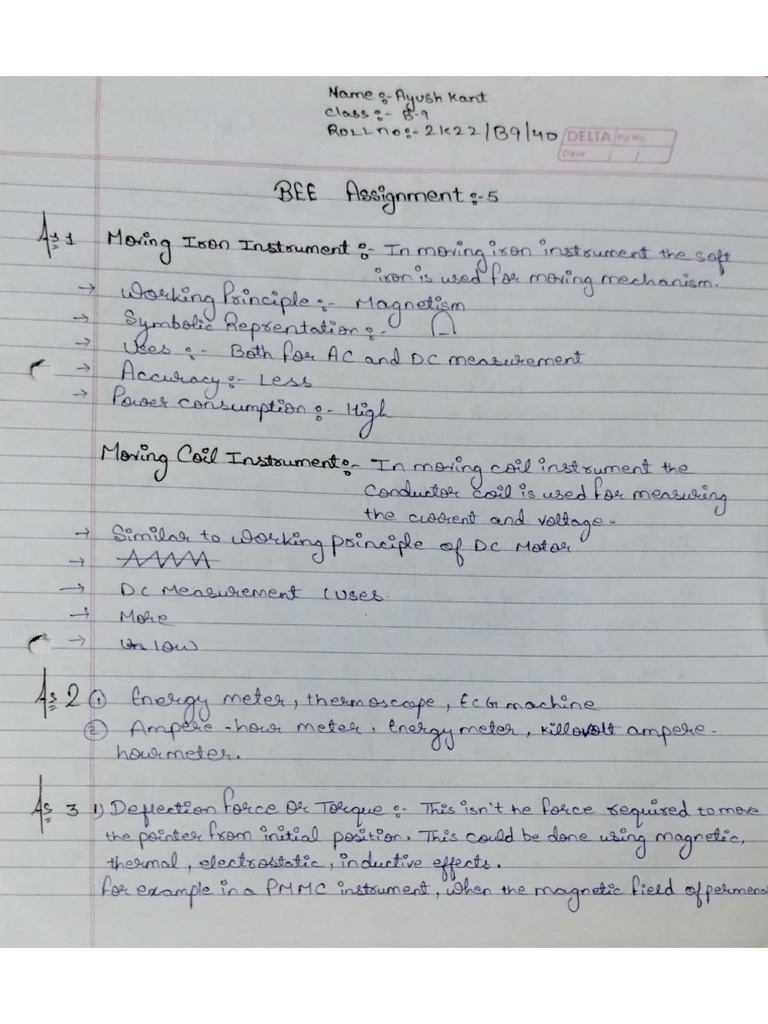 Name :- Ayush Kant
Class :- B-9
Roll no :- 2K22/B9/40
DELTA Pg No.
Date / /
BEE Assignment :- 5
As 1 Moving Iron Instrument :- In moving iron instrument the soft
iron is used for moving mechanism.
→ Working Principle :- Magnetism
→ Symbolic Reprentation :-
→ Uses :- Both for AC and DC measurement
→ Accuracy :- Less
→ Power consumption :- High
Moving Coil Instrument :- In moving coil instrument the
conductor coil is used for measuring
the current and voltage.
→ Similar to working principle of DC Motor
→
→ DC Measurement (Uses.
→ More
→ low
As 2 ① Energy meter, thermoscope, ECG machine
② Ampere-hour meter, Energy meter, killovolt ampere-
hourmeter.
As 3 1) Deflection Force Or Torque :- This isn't he force required to move
the pointer from initial position. This could be done using magnetic,
thermal, electrostatic, inductive effects.
for example in a PMMC instrument, when the magnetic field of permena